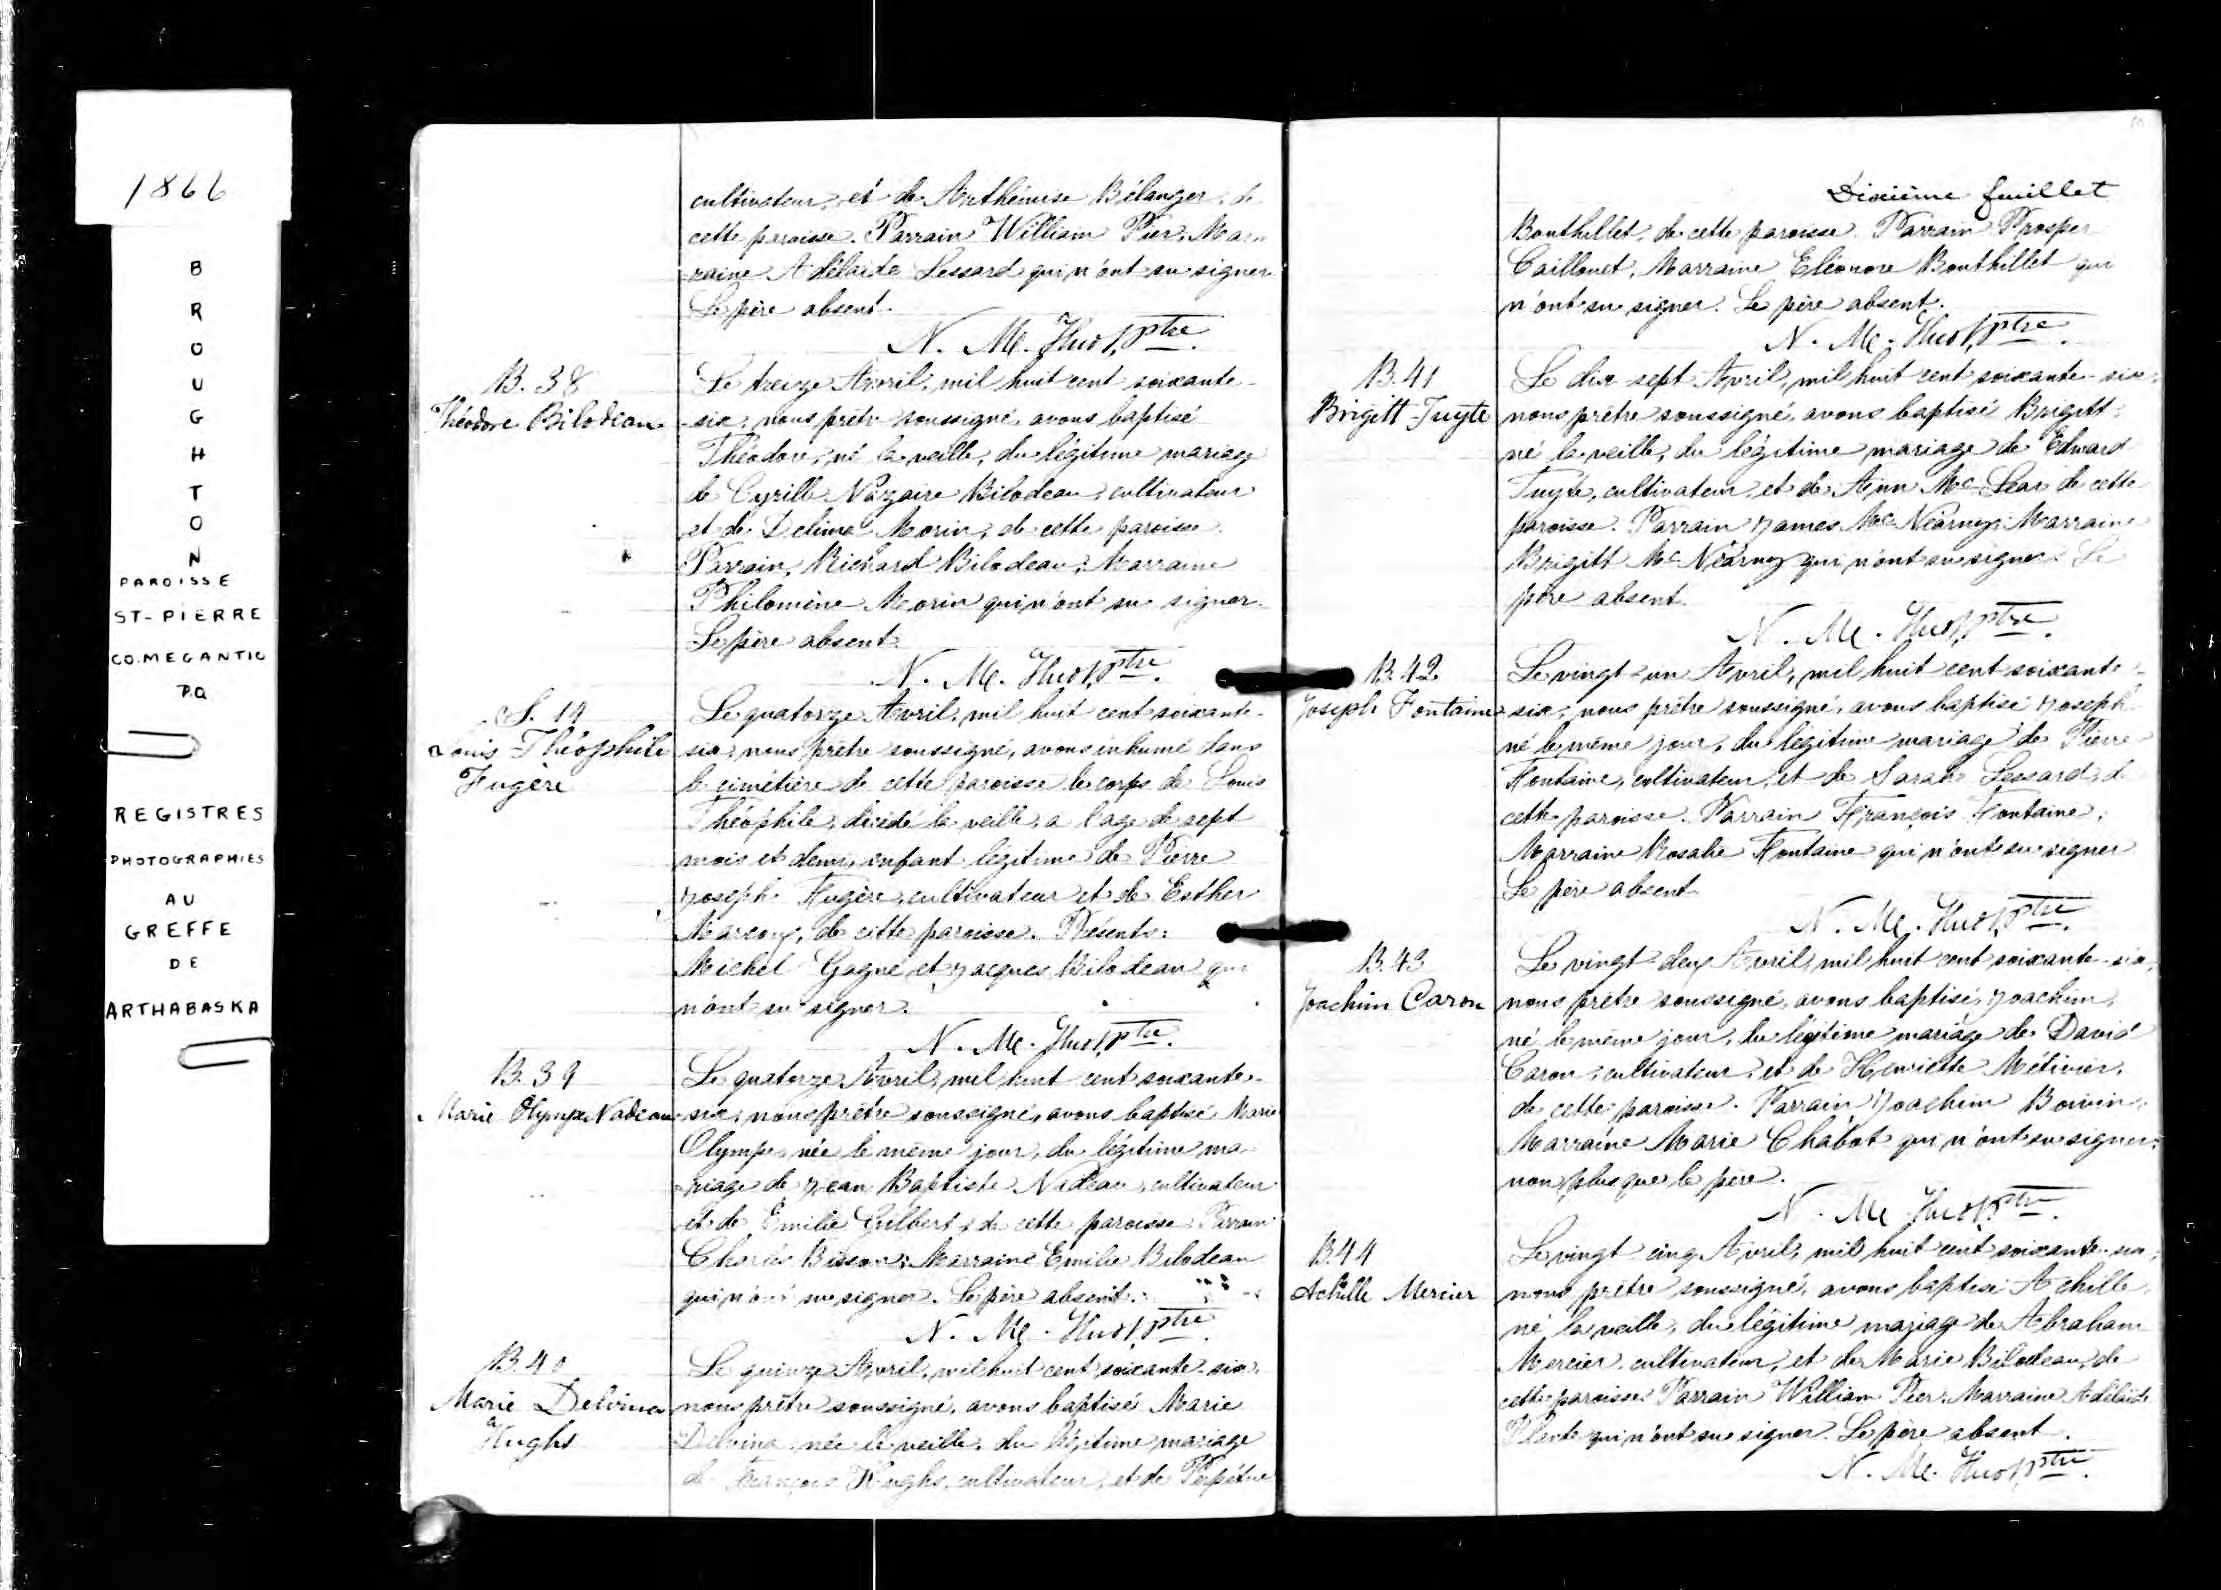 1866
BROUGHTON
PAROISSE
ST-PIERRE
CO. MEGANTIC
P.Q
REGISTRES
PHOTOGRAPHIES
AU
GREFFE
DE
ARTHABASKA
cultivateur, et de Arthémise Bélanger, de
cette paroisse. Parrain William Pier, Mar-
raine Adélaïde Lessard qui n'ont su signer.
Le père absent.
N. M. Huot, Ptre.
B. 38
Théodore Bilodeau
Le treize Avril, mil huit cent soixante-
six, nous prêtre soussigné, avons baptisé
Théodore, né la veille, du légitime mariage
de Cyrille Nazaire Bilodeau, cultivateur
et de Délima Morin, de cette paroisse.
Parrain, Richard Bilodeau; Marraine
Philomène Morin qui n'ont su signer.
Le père absent.
N. M. Huot, Ptre.
S. 14
Louis Théophile
Fugère
Le quatorze Avril, mil huit cent soixante-
six, nous prêtre soussigné, avons inhumé dans
le cimétière de cette paroisse le corps de Louis
Théophile, décédé la veille, a l'age de sept
mois et demi, enfant légitime de Pierre
Joseph Fugère, cultivateur et de Esther
Marcoux, de cette paroisse. Présents:
Michel Gagné et Jacques Bilodeau qui
n'ont su signer.
N. M. Huot, Ptre.
B. 39
Marie Olympe Nadeau
Le quatorze Avril, mil huit cent soixante-
six, nous prêtre soussigné, avons baptisé Marie
Olympe, née le même jour, du légitime ma-
riage de Jean Baptiste Nadeau, cultivateur
et de Emilie Gilbert, de cette paroisse. Parrain
Charles Bisson; Marraine Emilie Bilodeau
qui n'ont su signer. Le père absent.
N. M. Huot, Ptre.
B. 40
Marie Delvina
Hughs
Le quinze Avril, mil huit cent soixante-six,
nous prêtre soussigné, avons baptisé Marie
Delvina, née la veille, du légitime mariage
de François Hughs, cultivateur, et de Perpétue
Dixième feuillet
Bouthillet, de cette paroisse. Parrain Prosper
Caillouet, Marraine Eléonore Bouthillet qui
n'ont su signer. Le père absent.
N. M. Huot, Ptre.
B. 41
Brigitt Tuyte
Le dix sept Avril, mil huit cent soixante-six,
nous prêtre soussigné, avons baptisé Brigitt
né la veille, du légitime mariage de Edward
Tuyte, cultivateur, et de Ann Mc Lear de cette
paroisse. Parrain James Mc Nearney; Marraine
Brigitt Mc Nearney qui n'ont su signer. Le
père absent.
N. M. Huot, Ptre.
B. 42
Joseph Fontaine
Le vingt-un Avril, mil huit cent soixante-
six, nous prêtre soussigné, avons baptisé Joseph
né le même jour, du légitime mariage de Pierre
Fontaine, cultivateur, et de Sarah Lessard, de
cette paroisse. Parrain François Fontaine,
Marraine Rosalie Fontaine qui n'ont su signer
Le père absent.
N. M. Huot, Ptre.
B. 43
Joachim Caron
Le vingt deux Avril, mil huit cent soixante-six,
nous prêtre soussigné, avons baptisé, Joachim,
né le même jour, du légitime mariage de David
Caron, cultivateur, et de Henriette Métivier,
de cette paroisse. Parrain Joachim Boivin,
Marraine Marie Chabot qui n'ont su signer,
non plus que le père.
N. M. Huot, Ptre.
B. 44
Achille Mercier
Le vingt cinq Avril, mil huit cent soixante-six,
nous prêtre soussigné, avons baptisé Achille,
né la veille, du légitime mariage de Abraham
Mercier, cultivateur, et de Marie Bilodeau, de
cette paroisse. Parrain William Pier, Marraine Adélaïde
Plante qui n'ont su signer. Le père absent.
N. M. Huot, Ptre.